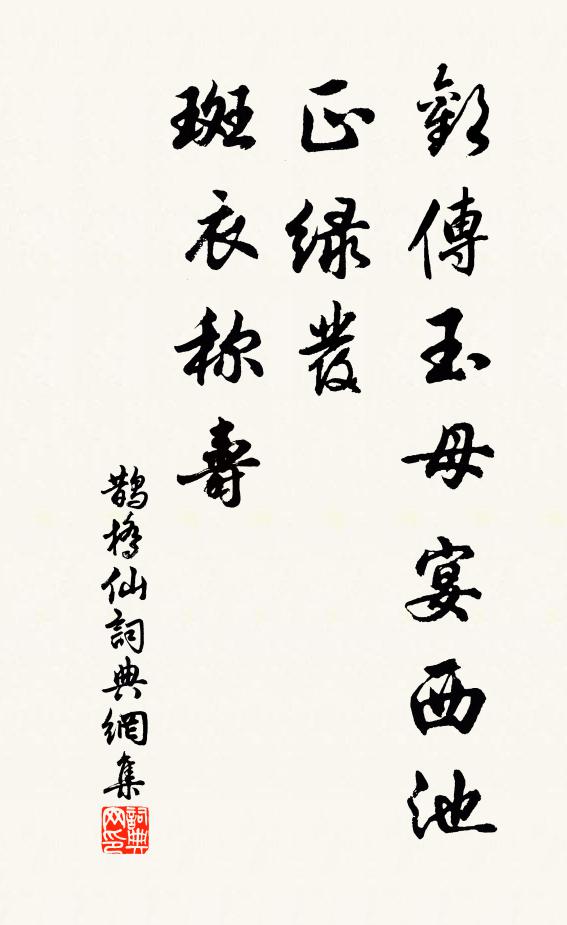 歡傳玉母宴西池
正緑發
斑衣称壽
鵲橋仙詞典網集
詞典网印